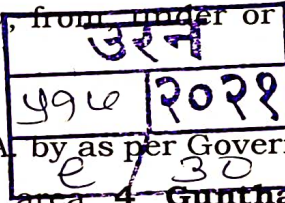 , from, under or
उरन
२०२१
by as per Gover
९ / ३०
area 4 Guntha